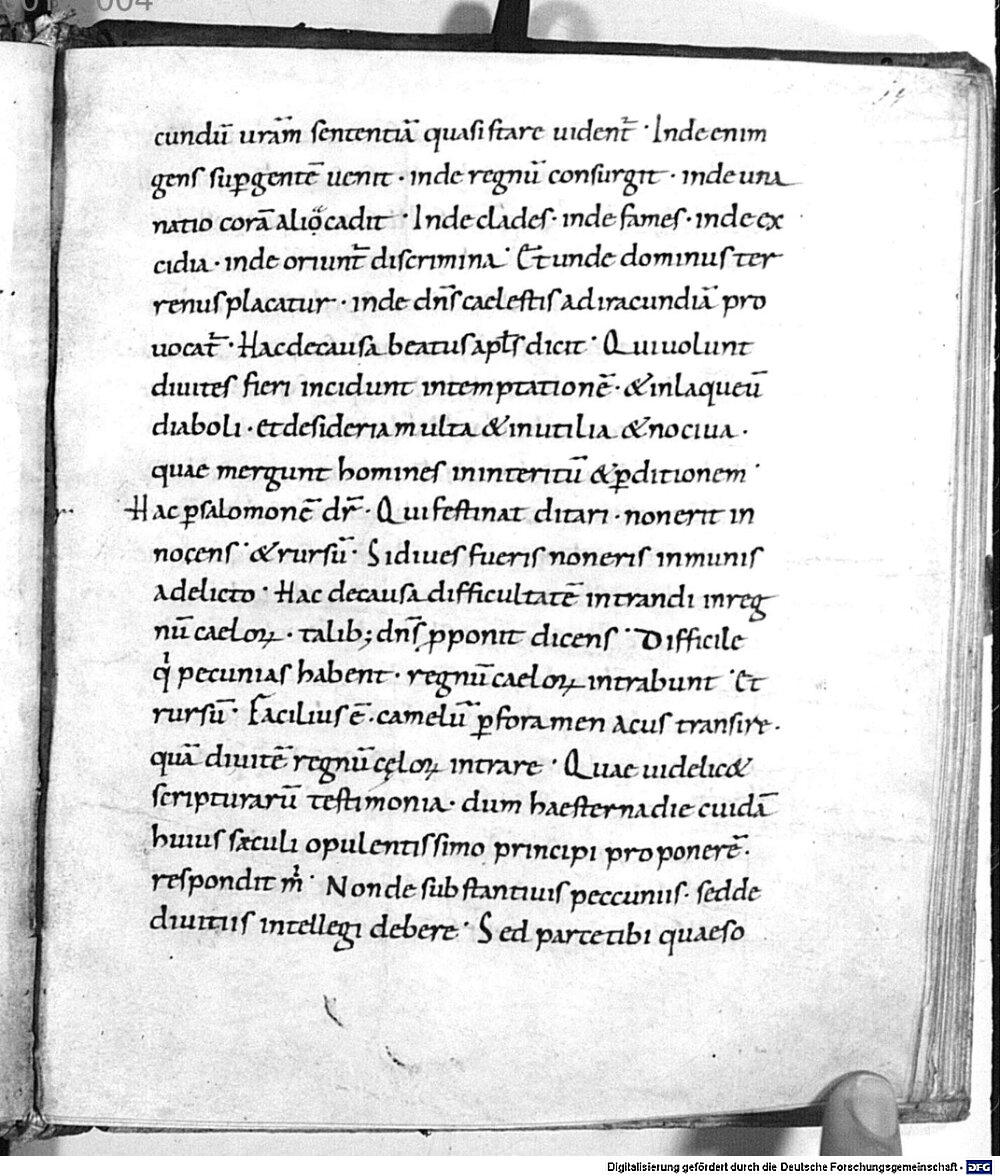 cundū urām sententiā quasi stare uident̄ · Inde enim
gens sup̲ gentē uenit · inde regnū consurgit · inde una
natio corā alio cadit · Inde clades · inde fames · inde ex
cidia · inde oriunt̄ discrimina · Et unde dominus ter
renus placatur · inde dn̄s caelestis ad iracundiā pro
uocat̄ · Hac de causa beatus apt̄s dicit · Qui uolunt
diuites fieri incidunt in temptationē · & in laqueū
diaboli · et desideria multa & inutilia & nociua ·
quae mergunt homines in interitū & ꝑditionem ·
Hac ꝑ salomonē dr̄ · Qui festinat ditari · non erit in
nocens · & rursū · Si diues fueris non eris inmunis
a delicto · Hac de causa difficultatē intrandi in reg
nū caeloꝝ · talib; dn̄s ꝓponit dicens · Difficile
qͥ pecunias habent · regnū caeloꝝ intrabunt · Et
rursū · Facilius ē · camelū ꝑ foramen acus transire ·
quā diuitē regnū cęloꝝ intrare · Quae uidelic&
scripturarū testimonia · dum haesterna die cuidā
huius sæculi opulentissimo principi proponerē ·
respondit mͥ · Non de substantiuis peccuniis · sed de
diuitiis intellegi debere · Sed parce tibi quaeso
Digitalisierung gefördert durch die Deutsche Forschungsgemeinschaft · DFG